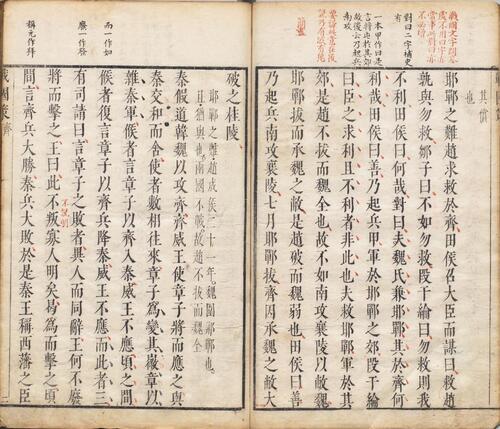 其慣
也
對曰二字補史
有
邯鄲之難趙求救於齊田侯召大臣而謀曰救趙
孰與勿救鄒子曰不如勿救段干綸曰勿救則我
不利田侯曰何哉對曰夫魏氏兼邯鄲其於齊何
利哉田侯曰善乃起兵甲軍於邯鄲之郊段干綸
一本甲作曰是
言將屯於其郊
故後云乃起兵
南攻
曰臣之求利且不利者非此也夫救邯鄲軍於其
郊是趙不拔而魏全也故不如南攻襄陵以敝魏
邯鄲拔而承魏之敝是趙破而魏弱也田侯曰善
乃起兵南攻襄陵七月邯鄲拔齊因承魏之敝大
破之桂陵
邯鄲之難趙成侯二十一年魏圍邯鄲也
且猶與也兩國不敝故趙不拔而魏全
秦假道韓魏以攻齊齊威王使章子將而應之與
秦交和而舍使者數相往來章子為變其徽章以
雜秦軍候者言章子以齊入秦威王不應頃之間
而一作如
候者復言章子以齊兵降秦威王不應而此者三
廢一作發
有司請曰言章子之敗者異人而同辭王何不廢
將而擊之王曰此不叛寡人明矣曷為而擊之頃
不說明
稱元作拜
間言齊兵大勝秦兵大敗於是秦王稱西藩之臣
戰國策 齊 二